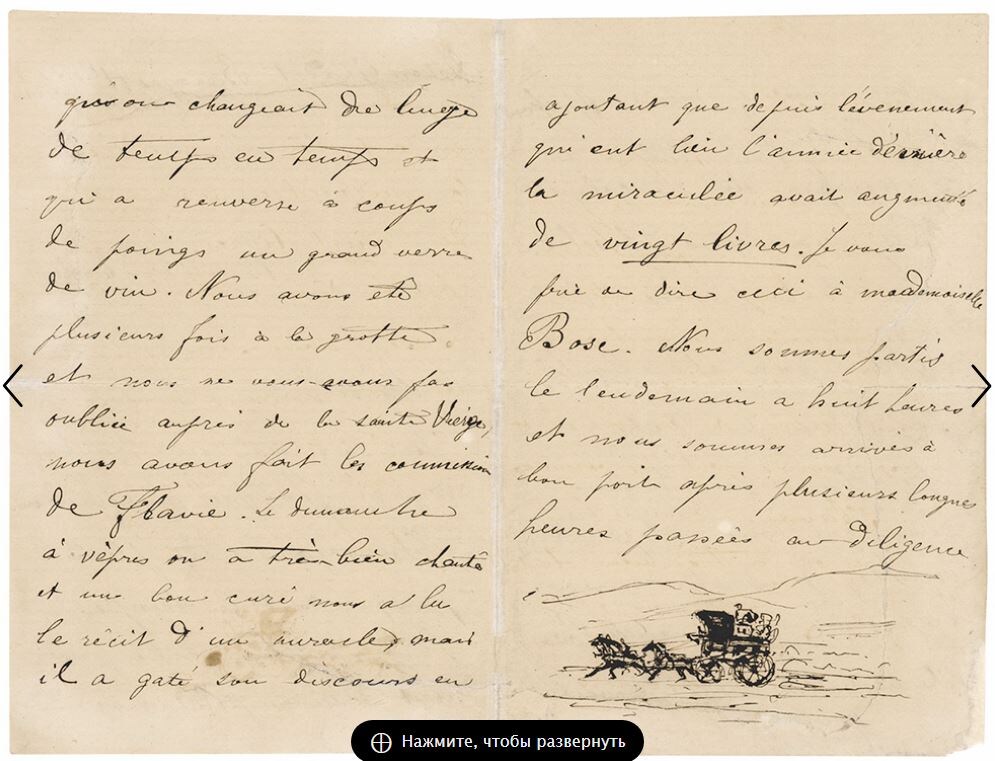 qu'on changeait de linge
de temps en temps et
qui a renversé à coups
de poings un grand verre
de vin. Nous avons été
plusieurs fois à la grotte
et nous ne vous avons pas
oubliée auprès de la sainte Vierge,
nous avons fait les commissions
de Flavie. Le dimanche
à vêpres on a très-bien chanté
et un bon curé nous a lu
le récit d'un miracle, mais
il a gaté son discours en
ajoutant que depuis l'évenement
qui eut lieu l'année dernière
la miraculée avait augmenté
de vingt livres. Je vous
prie de dire ceci à mademoiselle
Bose. Nous sommes partis
le lendemain a huit heures
et nous sommes arrivés à
bon port après plusieurs longues
heures passées en diligence
Нажмите, чтобы развернуть